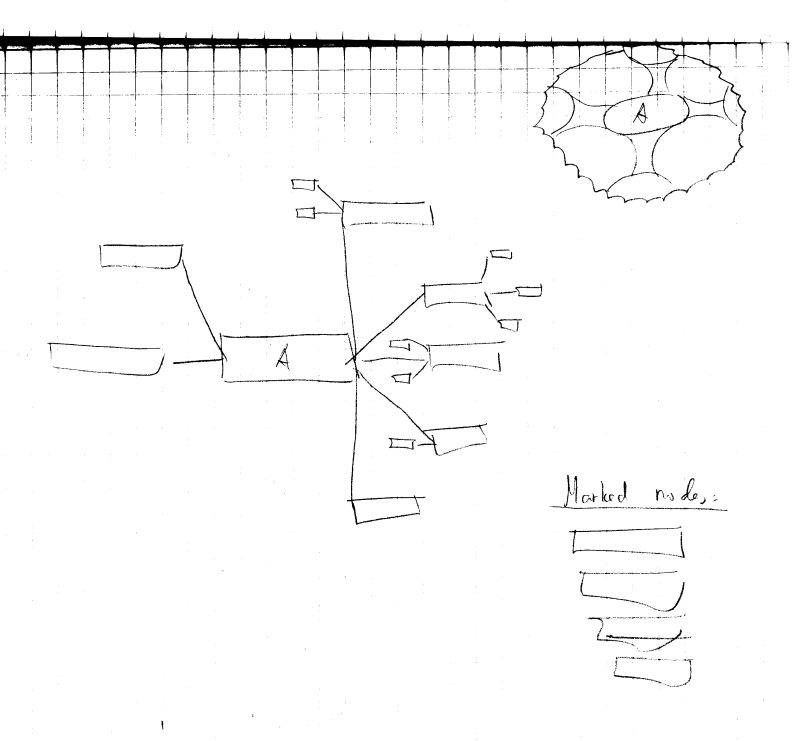 A
A
Marked nodes: